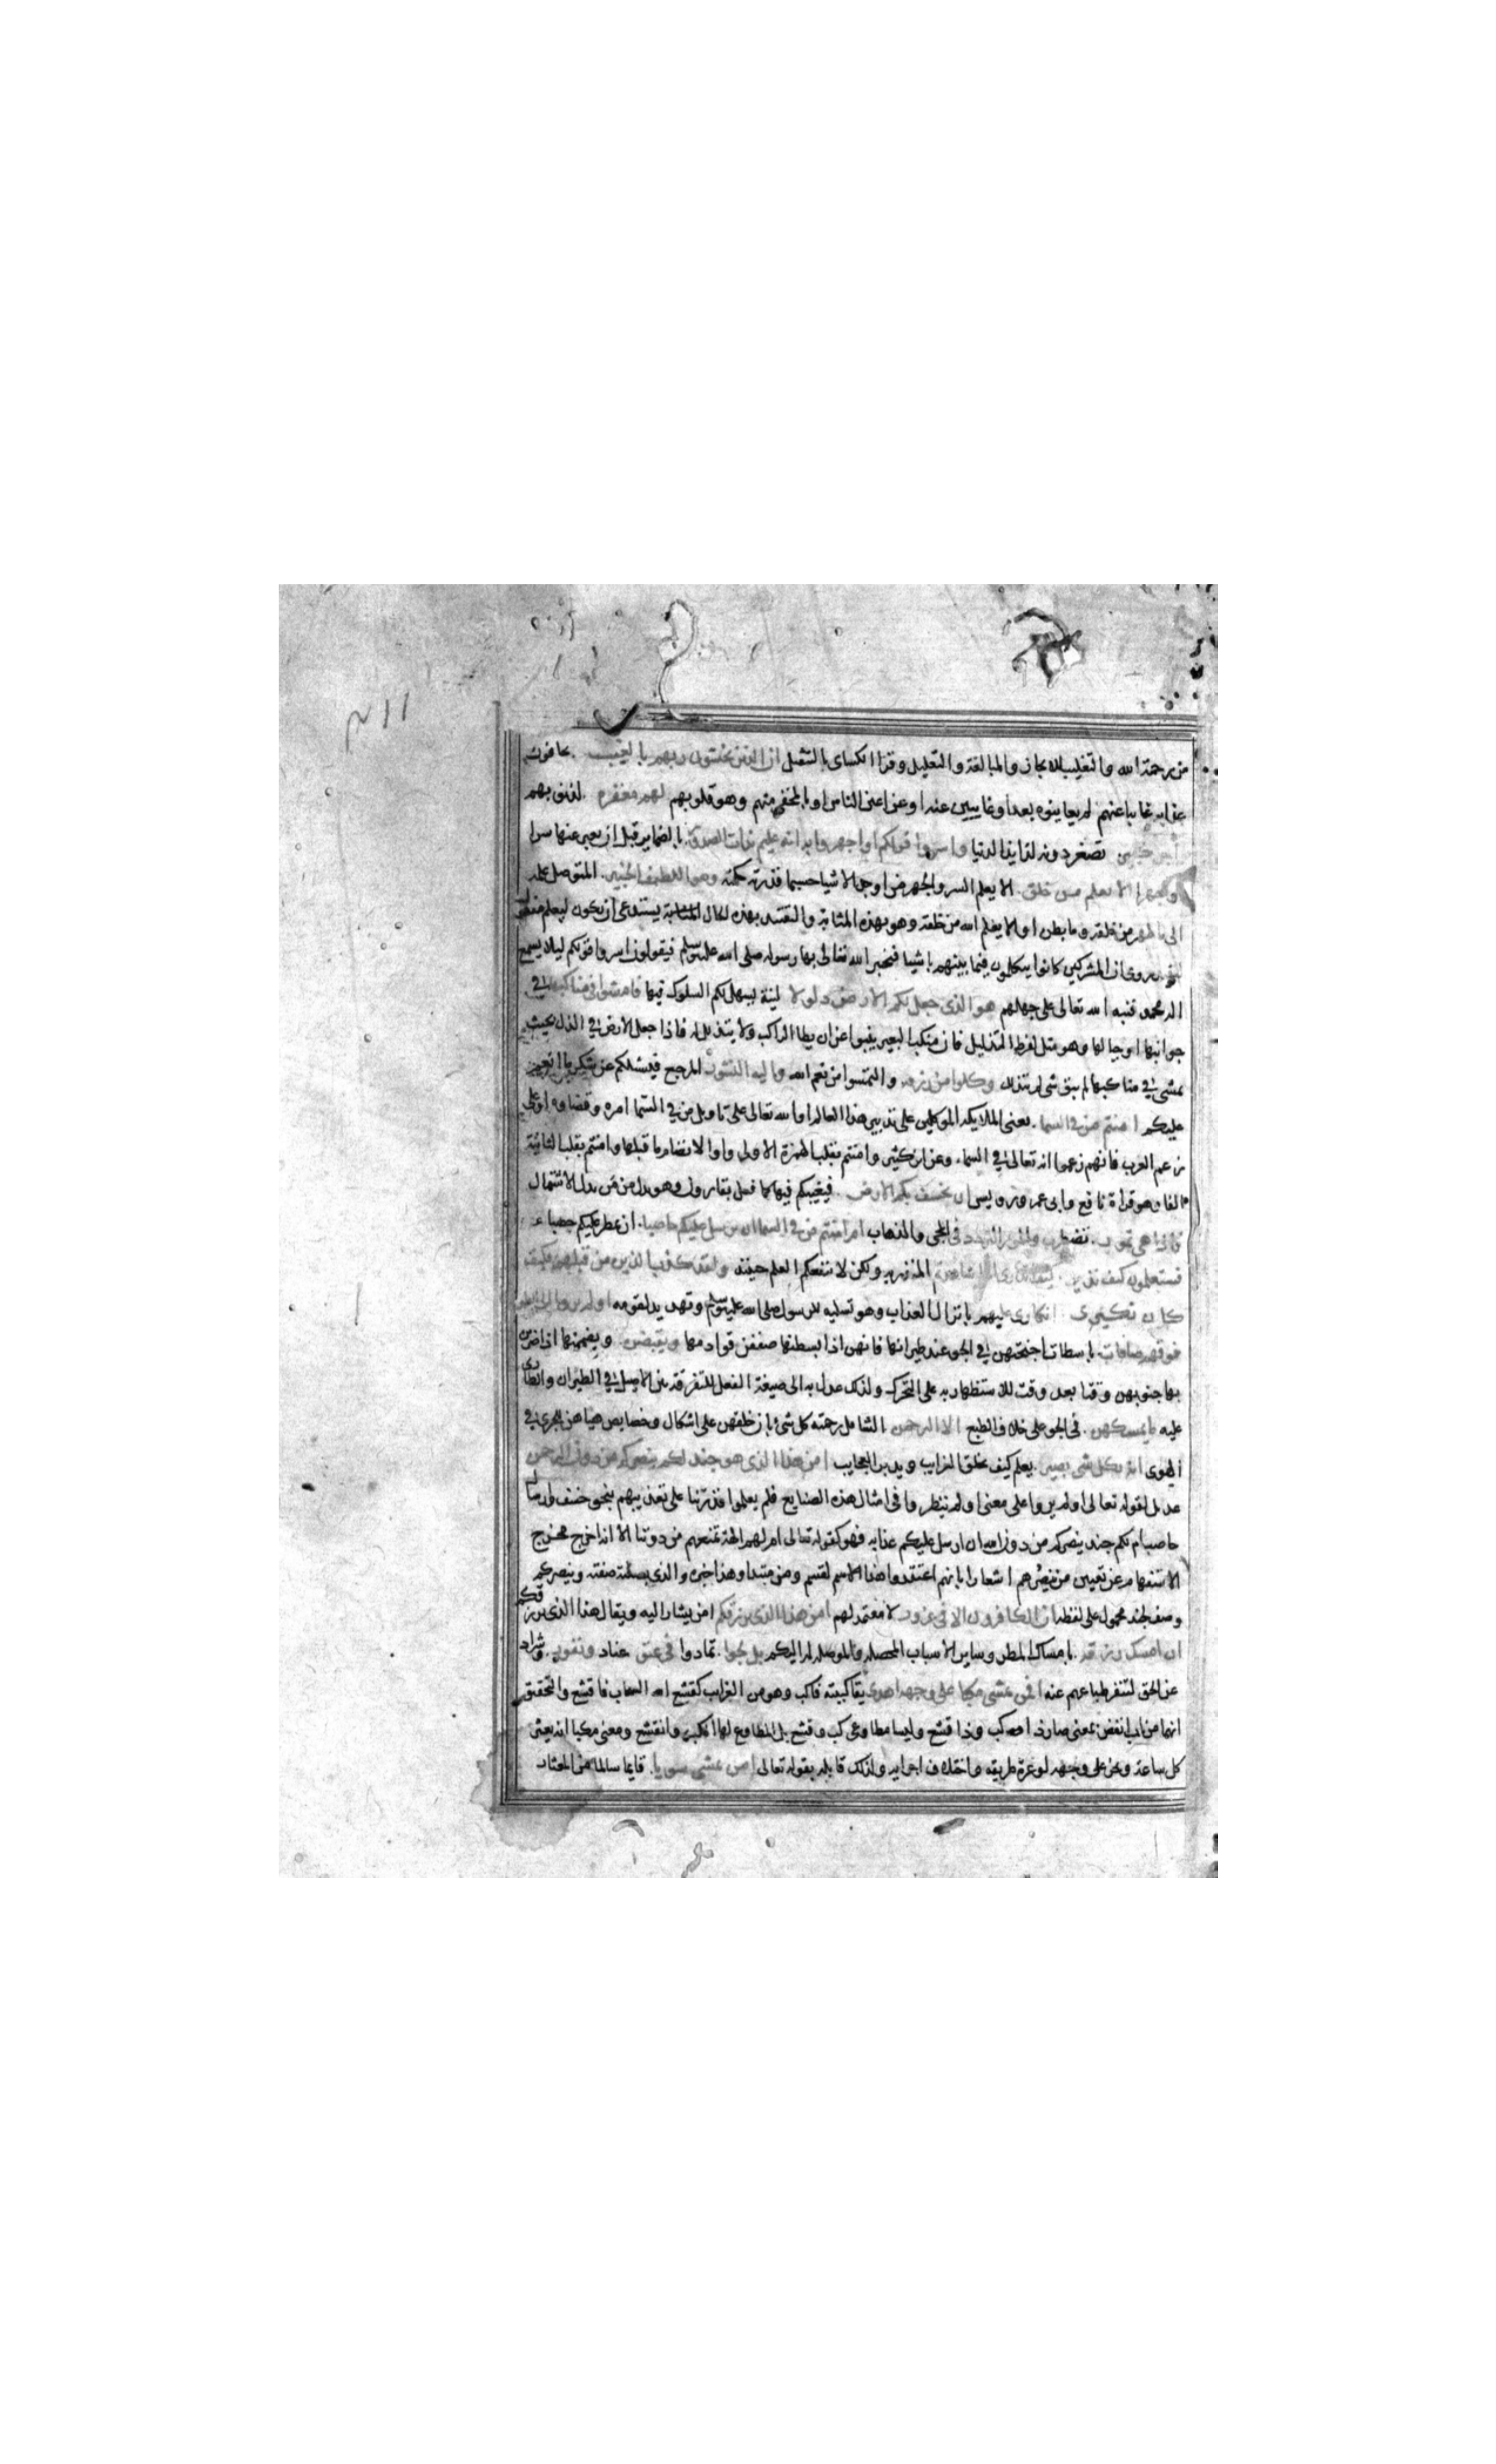 من رحمة الله والتغليب للايجاز والمبالغة والتعليل وقرا الكساى بالتثقيل ان الذين يخشون ربهم بالغيب . يخافون
عذابه غايبا عنهم لم يعاينوه بعد او غايبين عنه او عن اعين الناس او بالمخفى منهم وهو قلوبهم لهم مغفرة . لذنوبهم
واجر كبير تصغر دونه لذايذ الدنيا واسروا قولكم او اجهروا به انه عليم بذات الصدور بالضماير قبل ان يعبر عنها سرا
وجهرا الا يعلم من خلق . الا يعلم السر والجهر من اوجد الاشيا حسبما قدرته حكمته وهو اللطيف الخبير . المتوصل علمه
الى ما ظهر من خلقه وما بطن او الا يعلم الله من خلقه وهو بهذه المثابة والتقييد بهذه الحال يستدعى ان يكون ليعلم مفعول
روى ان المشركين كانوا يتكلمون فيما بينهم باشيا فيخبر الله تعالى بها رسوله صلى الله عليه وسلم فيقولون اسروا قولكم ليلا يسمع
اله محمد فنبه الله تعالى على جهلهم هو الذى جعل لكم الارض ذلولا لينة ليسهل لكم السلوك فيها فامشوا فى مناكبها فى
جوانبها او جبالها وهو مثل لفرط التذليل فان منكب البعير ينبوا عن ان يطا الراكب ولا يتذلل له فاذا جعل الارض فى الذل بحيث
يمشى فى مناكبها لم يبق شى لم يتذلل وكلوا من رزقه والتمسوا من نعم الله واليه النشور المرجع فيسئلكم عن شكر ما انعم
عليكم امنتم من فى السما . يعنى الملايكة الموكلين على تدبير هذا العالم او الله تعالى على تاويل من فى السما امره وقضاوه او على
زعم العرب فانهم زعموا انه تعالى فى السما . وعن ابن كثير وامنتم بقلب الهمزة الاولى واوا لانضمام ما قبلها وامنتم بقلب الثانية
الفا وهو قراة نافع وابى عمرو ورويس ان يخسف بكم الارض . فيغيبكم فيها كما فعل بقارون وهو بدل من من بدل الاشتمال
فاذا هى تمور . تضطرب والمور التردد فى المجى والذهاب ام امنتم من فى السما ان يرسل عليكم حاصبا . ان يمطر عليكم حصبا
فستعلمون كيف نذير . كيف انذارى اذا شاهدتم المنذر به ولكن لا ينفعكم العلم حينئذ ولقد كذب الذين من قبلهم فكيف
كان نكيرى . انكارى عليهم بانزال العذاب وهو تسليه للرسول صلى الله عليه وسلم وتهديد لقومه اولم يروا الى الطير
فوقهم صافات . باسطات اجنحتهن فى الجو عند طيرانها فانهن اذا بسطنها صففن قوادمها ويقبضن . ويضممنها اذا ضربن
بها جنوبهن وقتا بعد وقت للاستظهار به على التحرك ولذلك عدل به الى صيغة الفعل للتفرقة بين الاصيل فى الطيران والطارى
عليه ما يمسكهن . فى الجو على خلاف الطبع الا الرحمن الشامل رحمته كل شى بان خلقهن على اشكال وخصايص هياهن للجرى فى
الهوى انه بكل شى بصير . يعلم كيف يخلق الغرايب ويدبر العجايب امن هذا الذى هو جند لكم ينصركم من دون الرحمن
عديل لقوله تعالى اولم يروا على معنى اولم ينظروا فى امثال هذه الصنايع فلم يعلموا قدرتنا على تعذيبهم بنحو خسف وارسال
حاصب ام لكم جند ينصركم من دون الله ان ارسل عليكم عذابه فهو كقوله تعالى ام لهم الهة تمنعهم من دوننا الا انه اخرج مخرج
الاستفهام عن تعيين من ينصرهم اشعارا بانهم اعتقدوا هذا الاسم لقسم ومن مبتدا وهذا خبره والذى بصلته صفته وينصركم
وصف لجند محمول على لفظه ان الكافرون الا فى غرور لا معتمد لهم امن هذا الذى يرزقكم امن يشار اليه ويقال هذا الذى يرزقكم
ان امسك رزقه . بامساك المطر وساير الاسباب المحصله والموصله له اليكم بل لجوا . تمادوا فى عتو عناد ونفور . وشراد
عن الحق لتنفر طباعهم عنه افمن يمشى مكبا على وجهه اهدى يقال كببته فاكب وهو من الغرايب كقشع الله السحاب فاقشع والتحقيق
انهما من باب انفض بمعنى صار ذا كب وذا قشع وليسا مطاوعى كب وقشع بل المطاوع لهما انكب وانقشع ومعنى مكبا انه يعثر
كل ساعة ويخر على وجهه لوعرة طريقه واختلاف اجزايه ولذلك قابله بقوله تعالى امن يمشى سويا . قايما سالما من العثار